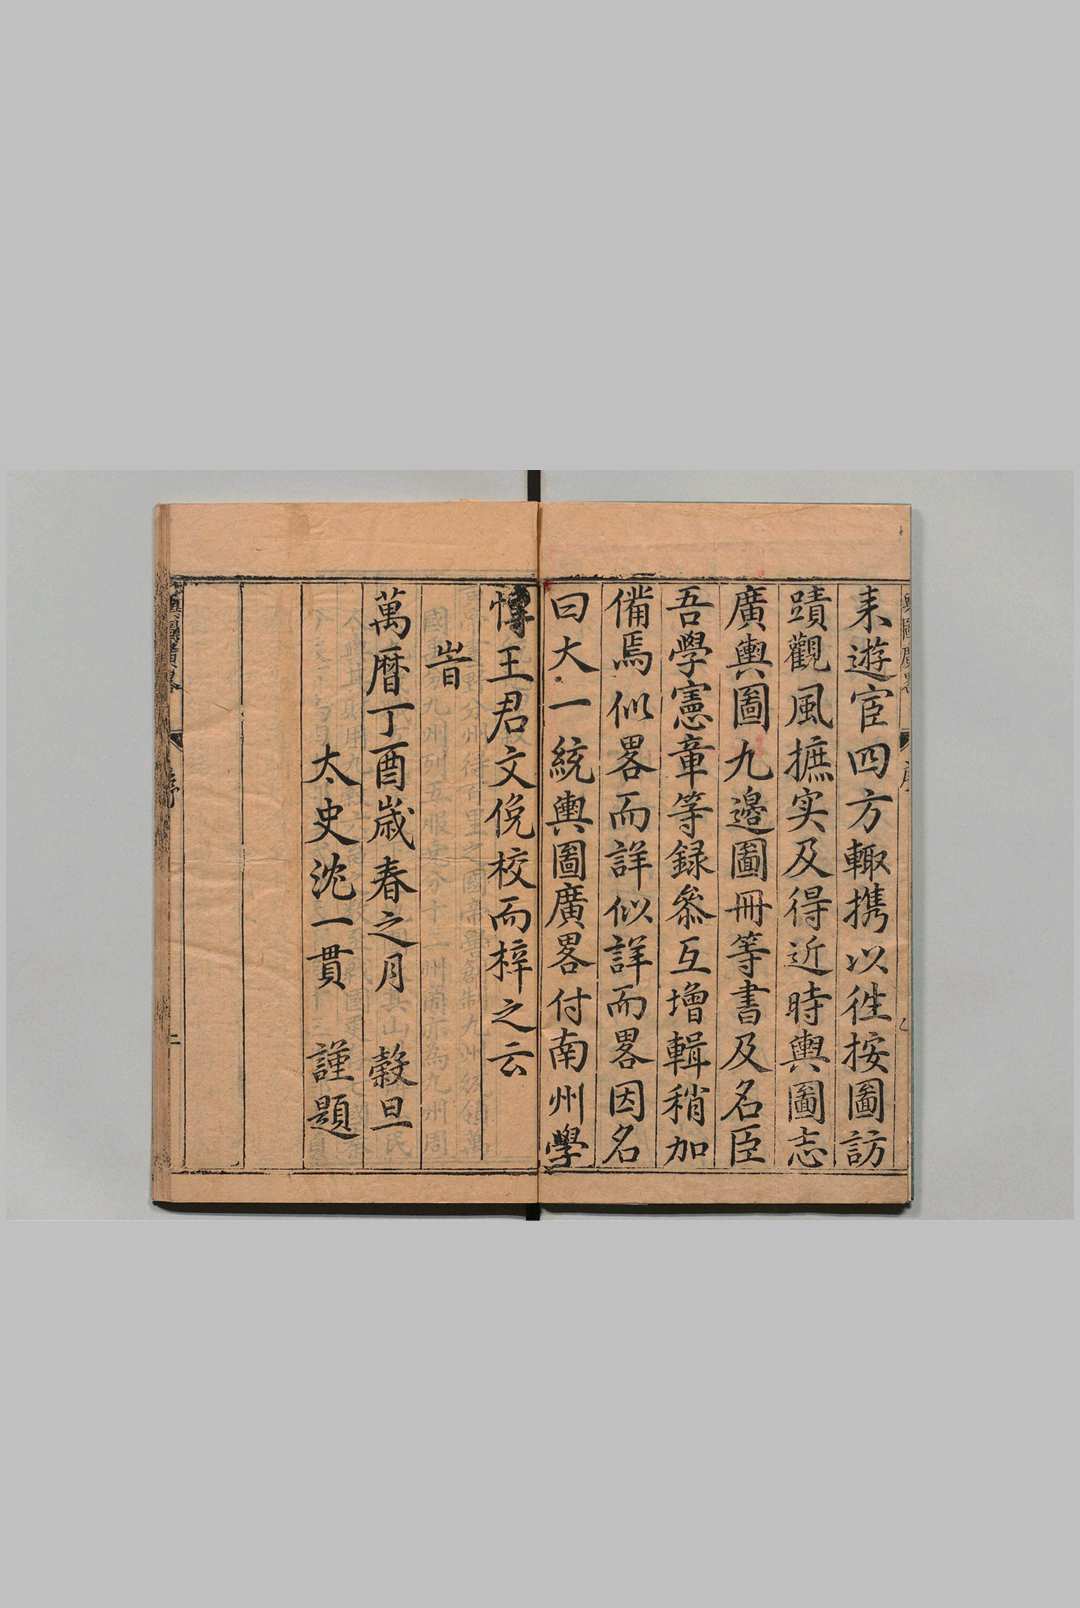 来遊宦四方輙携以徃按圗訪
蹟觀風摭实及得近時輿圗志
廣輿圗九邉圗冊等書及名臣
吾學憲章等録叅互增輯稍加
備焉似畧而詳似詳而畧因名
曰大一統輿圗廣畧付南州學
博王君文俛校而梓之云
旹
萬曆丁酉歲春之月 穀旦
太史沈一貫 謹題